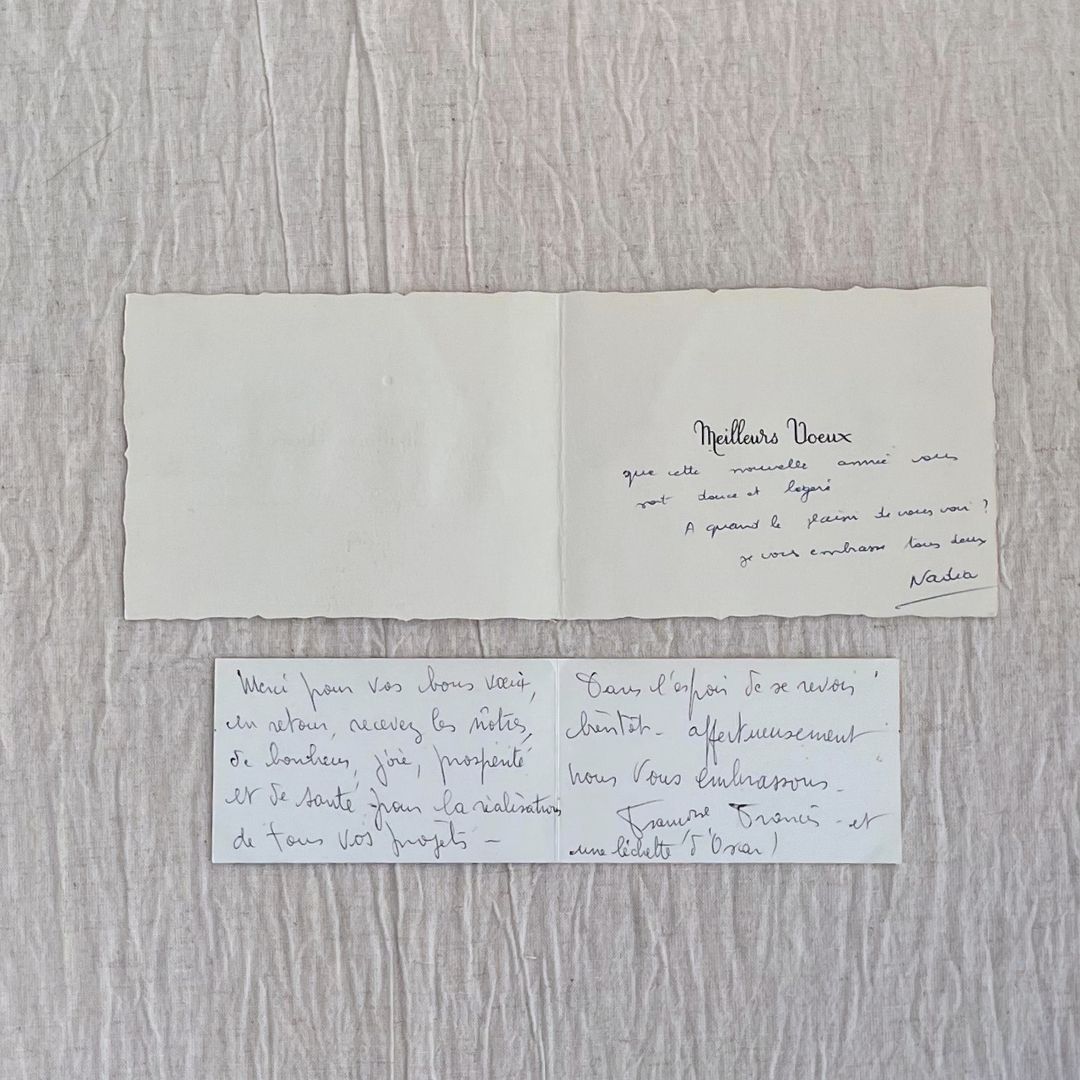 Meilleurs Voeux
que cette nouvelle année vous
soit douce et légère
A quand le plaisir de vous voir ?
je vous embrasse tous deux
Nadia
Merci pour vos bons vœux,
en retour, recevez les nôtres,
de bonheur, joie, prospérité
et de santé pour la réalisation
de tous vos projets -
Dans l'espoir de se revoir
bientôt - affectueusement
nous vous embrassons -
Francis - et
une léchette d'Oscar !